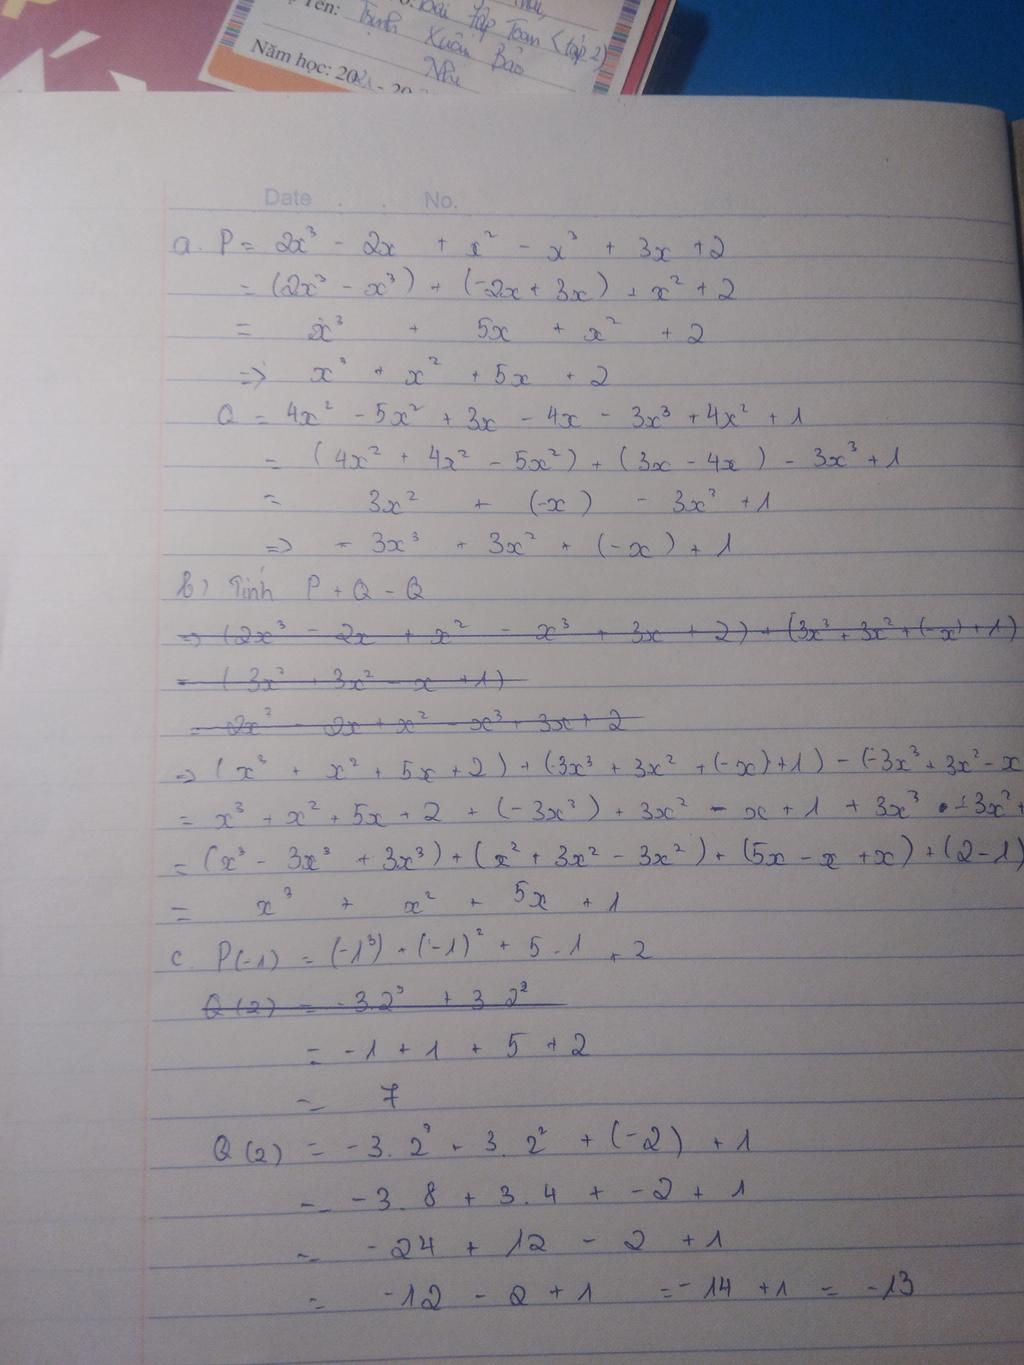 Tên: Trịnh Xuân Bảo Nhi
Bài tập Toán (tập 2)
Năm học: 2021 - 20
Date . . No.
a. P = 2x³ - 2x + x² - x³ + 3x + 2
= (2x³ - x³) + (-2x + 3x) + x² + 2
= x³ + 5x + x² + 2
=> x³ + x² + 5x + 2
Q = 4x² - 5x² + 3x - 4x - 3x³ + 4x² + 1
= (4x² + 4x² - 5x²) + (3x - 4x) - 3x³ + 1
= 3x² + (-x) - 3x³ + 1
=> - 3x³ + 3x² + (-x) + 1
b) Tính P + Q - Q
=> (2x³ - 2x + x² - x³ + 3x + 2) + (3x³ + 3x² + (-x) + 1)
- (3x³ + 3x² - x + 1)
= 2x³ - 2x + x² - x³ + 3x + 2
=> (x³ + x² + 5x + 2) + (-3x³ + 3x² + (-x) + 1) - (-3x³ + 3x² - x
= x³ + x² + 5x + 2 + (-3x³) + 3x² - x + 1 + 3x³ - 3x² +
= (x³ - 3x³ + 3x³) + (x² + 3x² - 3x²) + (5x - x + x) + (2 - 1)
= x³ + x² + 5x + 1
c. P(-1) = (-1³) + (-1)² + 5 . 1 + 2
Q(2) = -3.2³ + 3 2²
= -1 + 1 + 5 + 2
= 7
Q(2) = -3. 2³ + 3. 2² + (-2) + 1
= -3. 8 + 3. 4 + -2 + 1
= -24 + 12 - 2 + 1
= -12 - 2 + 1 = -14 + 1 = -13